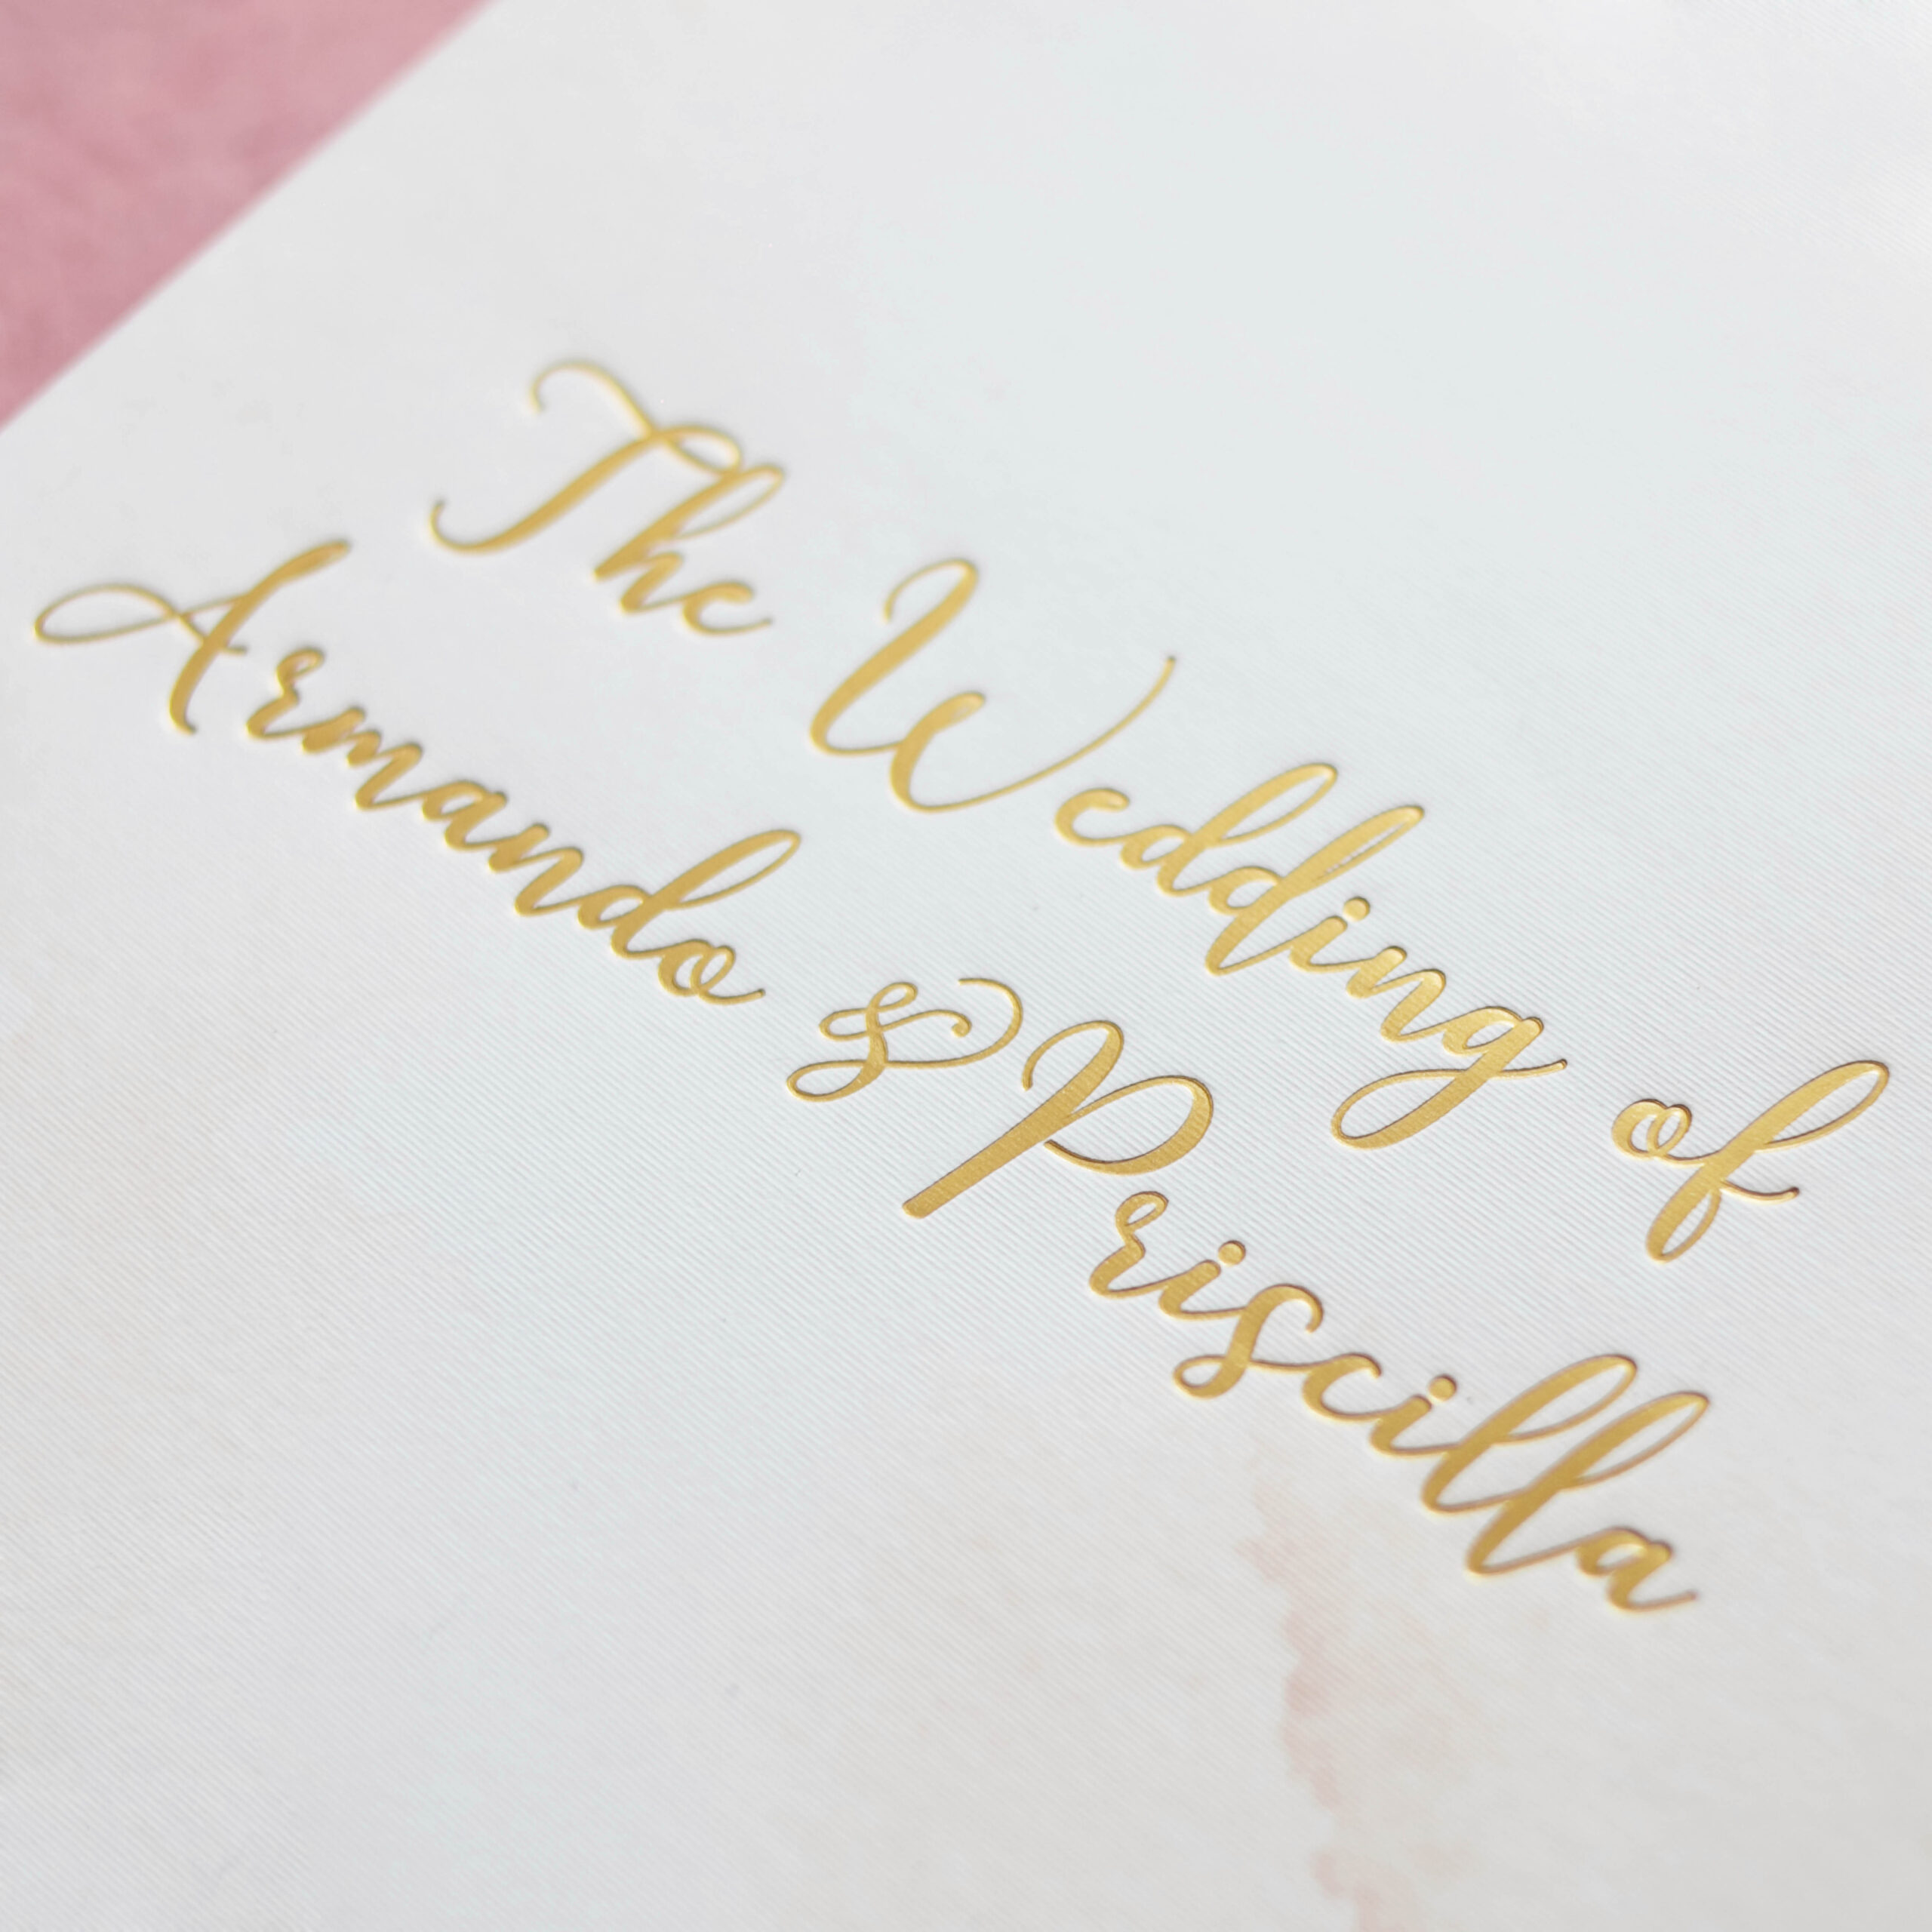 The Wedding of
Armando & Priscilla